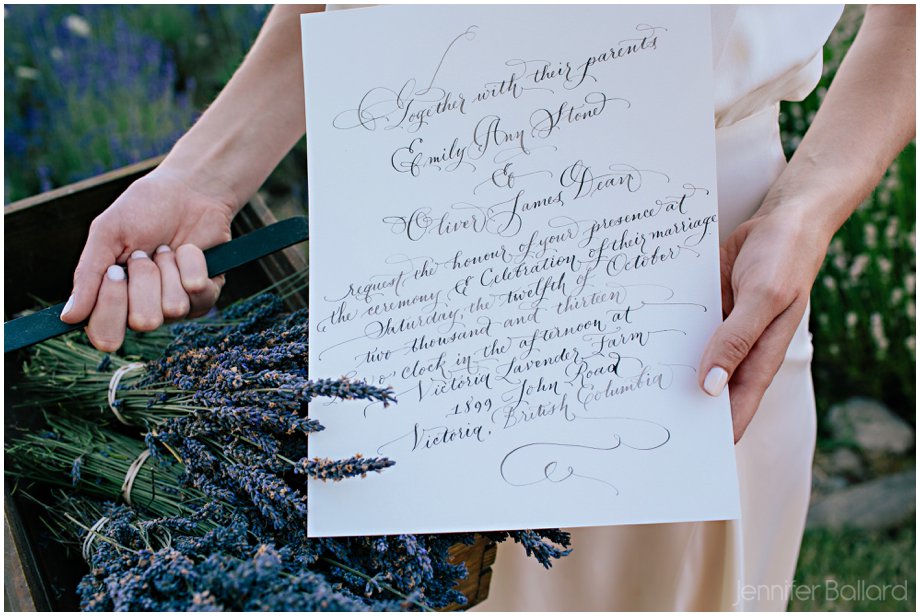 Together with their parents
Emily Ann Stone
&
Oliver James Dean
request the honour of your presence at
the ceremony & Celebration of their marriage
Saturday, the twelfth of October
two thousand and thirteen
Two o'clock in the afternoon at
Victoria Lavender Farm
1899 John Road
Victoria, British Columbia
Jennifer Ballard